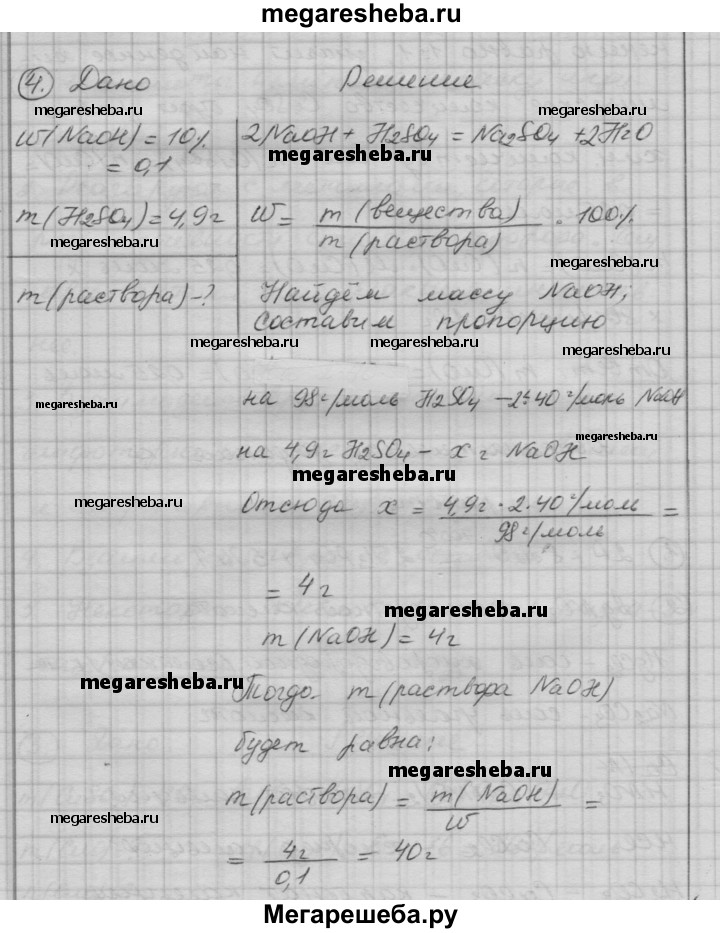 megaresheba.ru
4. Дано Решение
megaresheba.ru megaresheba.ru
W(NaOH) = 10% 2NaOH + H2SO4 = Na2SO4 + 2H2O
= 0,1 megaresheba.ru
m(H2SO4) = 4,9г W = m(вещества) / m(раствора) · 100%
megaresheba.ru
m(раствора) -? Найдём массу NaOH;
составим пропорцию
megaresheba.ru megaresheba.ru megaresheba.ru
на 98 г/моль H2SO4 - 2·40 г/моль NaOH
megaresheba.ru
на 4,9г H2SO4 - x г NaOH
megaresheba.ru
megaresheba.ru megaresheba.ru
Отсюда x = 4,9г · 2 · 40 г/мол / 98 г/моль =
= 4г
megaresheba.ru
m(NaOH) = 4г
megaresheba.ru
Тогда m(раствора NaOH)
будет равна:
megaresheba.ru
m(раствора) = m(NaOH) / W =
megaresheba.ru
= 4г / 0,1 = 40г
Мегарешеба.ру